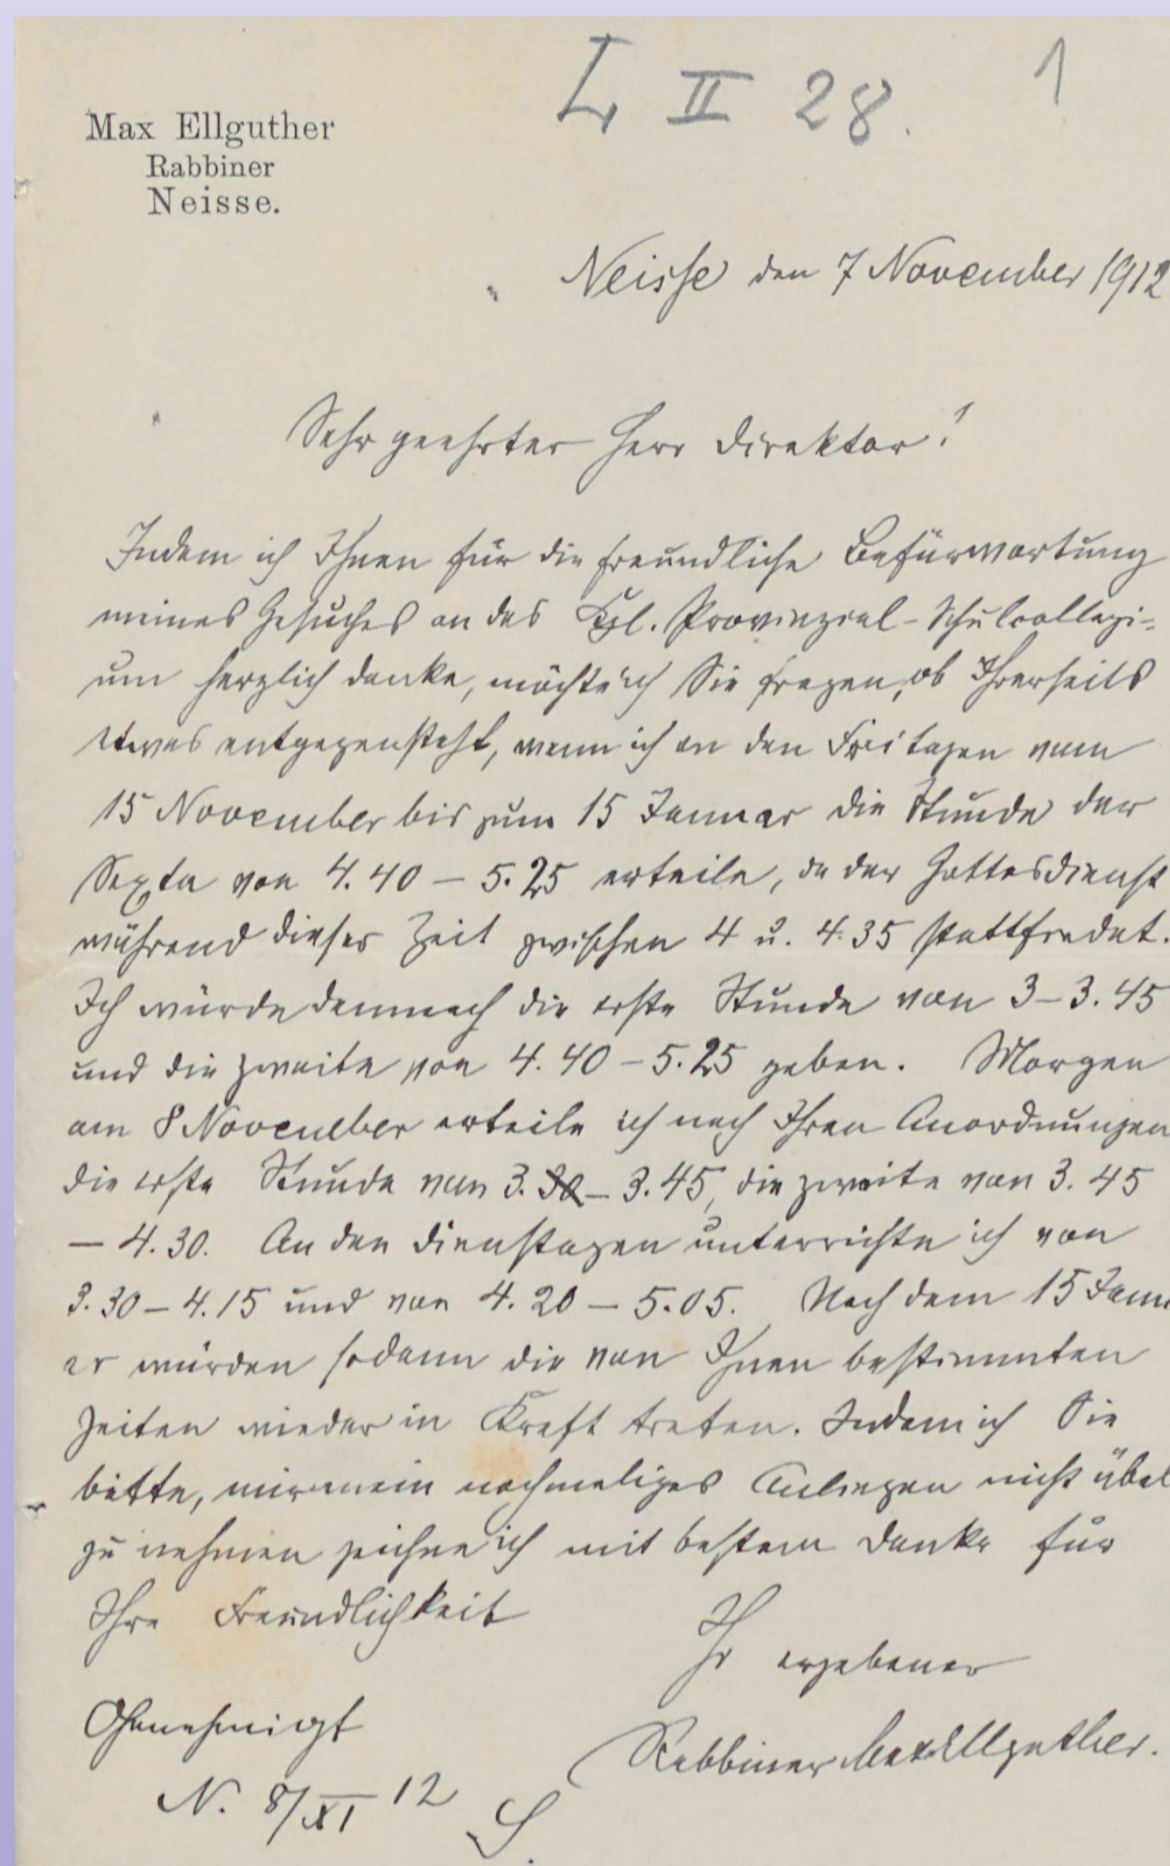 L II 28. 1
Max Ellguther
Rabbiner
Neisse.
Neisse den 7 November 1912
Sehr geehrter Herr Direktor!
Indem ich Ihnen für die freundliche Befürwortung
meines Gesuches an das Kgl. Provinzial-Schulcollegi-
um herzlich danke, möchte ich Sie fragen, ob Ihrerseits
etwas entgegensteht, wenn ich an den Freitagen vom
15 November bis zum 15 Januar die Stunde der
Sexta von 4.40 – 5.25 erteile, da der Gottesdienst
während dieser Zeit zwischen 4 u. 4.35 stattfindet.
Ich würde demnach die erste Stunde von 3–3.45
und die zweite von 4.40 – 5.25 geben. Morgen
am 8 November erteile ich nach Ihren Anordnungen
die erste Stunde von 3. – 3.45, die zweite von 3.45
– 4.30. An den Dienstagen unterrichte ich von
3.30 – 4.15 und von 4.20 – 5.05. Nach dem 15 Janu
ar würden sodann die von Ihnen bestimmten
Zeiten wieder in Kraft treten. Indem ich Sie
bitte, mir mein nochmaliges Anliegen nicht übel
zu nehmen zeichne ich mit bestem Danke für
Ihre Freundlichkeit
Ihr ergebener
Rabbiner Max Ellguther.
Genehmigt
N. 8/XI 12
S.